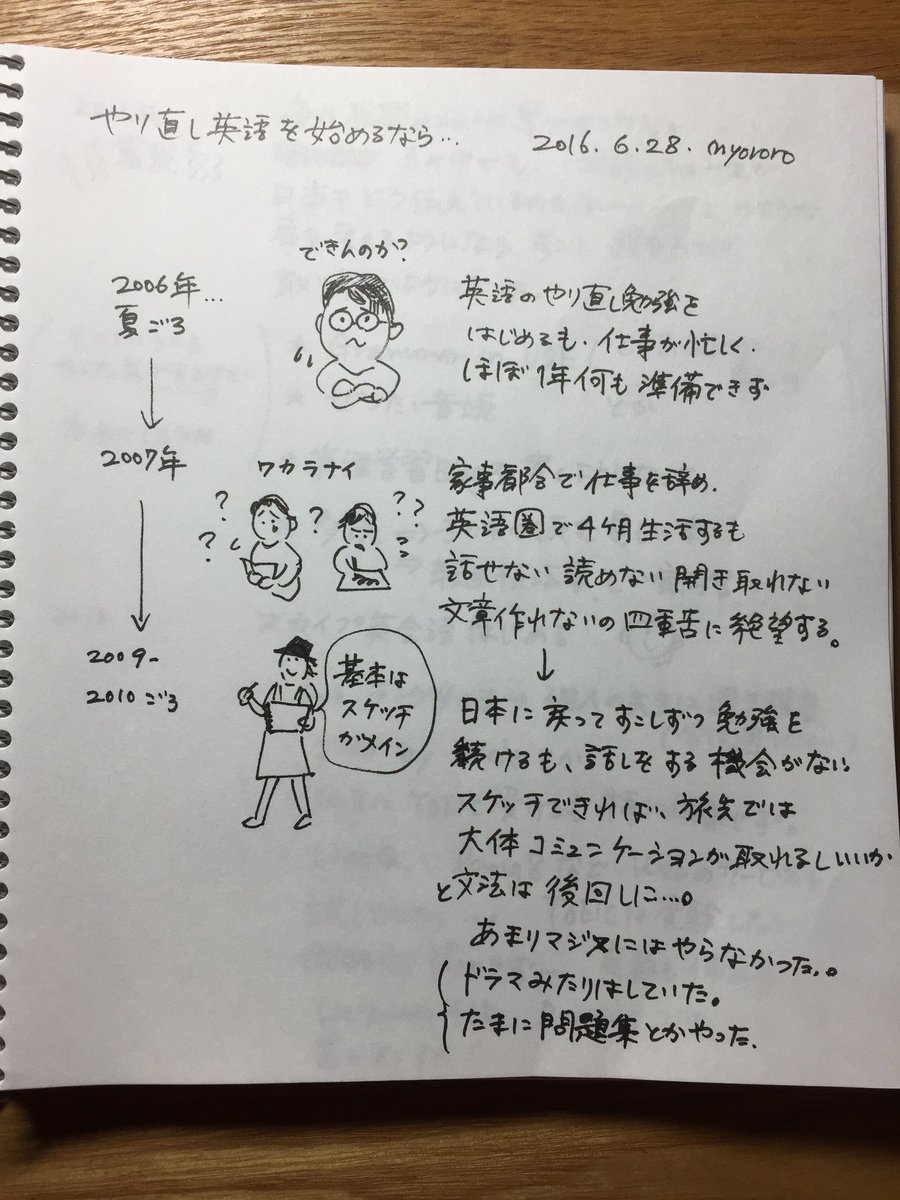 やり直し英語を始めるなら…
2016.6.28. myororo
2006年…
夏ごろ
できんのか?
英語のやり直し勉強を
はじめるも、仕事が忙しく、
ほぼ1年何も準備できず
2007年
ワカラナイ
? ? ? ? ? ?
家事都合で仕事を辞め、
英語圏で4ヶ月生活するも
話せない 読めない 開き取れない
文章作れないの四重苦に絶望する。
2009~
2010ごろ
基本は
スケッチ
がメイン
日本に戻ってすこしずつ勉強を
続けるも、話しをする機会がない
スケッチできれば、旅先では
大体コミュニケーションが取れるしいいか
と文法は後回しに…。
あまりマジメにはやらなかった。。
ドラマみたりはしていた。
たまに問題集とかやった.